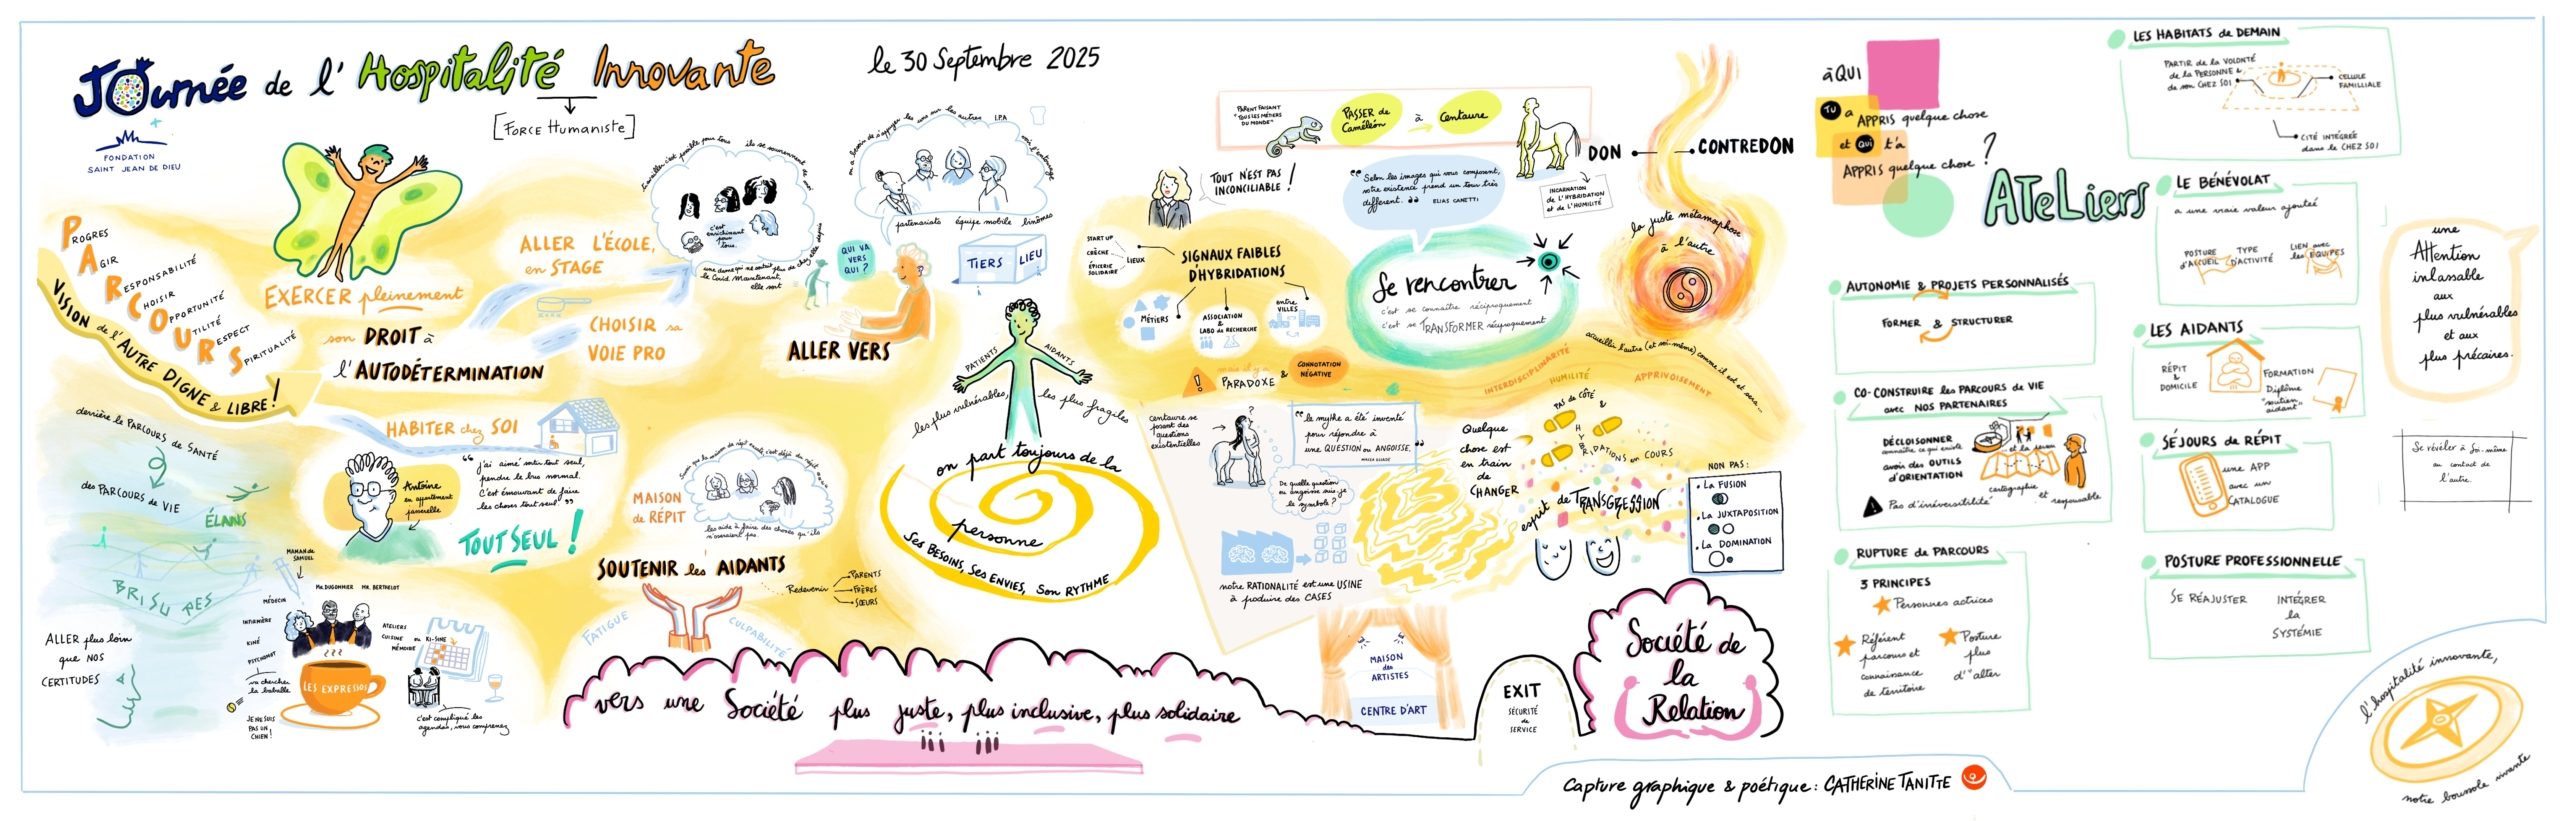 JOurnée de l'Hospitalité Innovante
[Force Humaniste]
le 30 Septembre 2025
+
FONDATION
SAINT JEAN DE DIEU
PROGRES
AGIR
RESPONSABILITÉ
CHOISIR
OPPORTUNITÉ
UTILITÉ
RESPECT
SPIRITUALITÉ
VISION de l'AUTRE DIGNE & LIBRE!
EXERCER pleinement
son DROIT à
l'AUTODÉTERMINATION
ALLER L'ÉCOLE,
en STAGE
CHOISIR sa
VOIE PRO
HABITER chez SOI
travailler c'est possible pour tous
ils se souviennent de moi
c'est
enrichissant
pour
tous.
une dame qui ne sortait plus de chez elle depuis
le Covid. Maintenant,
elle sort
on a besoin de s'appuyer les uns sur les autres
I.PA
partenariats équipe mobile binômes
QUI VA
VERS
QUI ?
TIERS LIEU
ALLER VERS
derrière le PARCOURS de SANTÉ
des PARCOURS de VIE
ÉLANS
BRISURES
ALLER plus loin
que NOS
CERTITUDES
Antoine
en appartement
passerelle
“ j'ai aimé sortir tout seul,
prendre le bus normal.
C'est émouvant de faire
les choses tout seul. ”
TOUT SEUL !
MAMAN de
SAMUEL
MR DUGONNIER MR BERTHELOT
MÉDECIN
INFIRMIÈRE
KINÉ
PSYCHOMOT
va chercher
la baballe
JE NE SUIS
PAS UN
CHIEN !
LES EXPRESSOS
ATELIERS
CUISINE ou KI-SINE
MÉMOIRE
c'est compliqué les
agendas, vous comprenez
MAISON
de RÉPIT
Savoir que la maison de répit existe, c'est déjà du répit
les aide à faire des choses qu'ils
n'oseraient pas.
SOUTENIR les AIDANTS
Redevenir
PARENTS
FRÈRES
SŒURS
FATIGUE
CULPABILITÉ
PATIENTS
AIDANTS
les plus vulnérables, les plus fragiles
on part toujours de la
personne
Ses BESOINS, Ses ENVIES, Son RYTHME
vers une Société plus juste, plus inclusive, plus solidaire
PARENT FAISANT
"TOUS LES MÉTIERS
DU MONDE"
PASSER de
Caméléon
à
Centaure
TOUT N'EST PAS
INCONCILIABLE !
“ Selon les images qui nous composent,
notre existence prend un tour très
différent. ” ELIAS CANETTI
INCARNATION
de L'HYBRIDATION
et de L'HUMILITÉ
DON
CONTREDON
la juste métamorphose
à l'autre
START UP
CRÈCHE
ÉPICERIE
SOLIDAIRE
LIEUX
SIGNAUX FAIBLES
D'HYBRIDATIONS
MÉTIERS
ASSOCIATION
&
LABO de RECHERCHE
entre
VILLES
mais il y a
PARADOXE
&
CONNOTATION
NÉGATIVE
Se rencontrer
c'est se connaître réciproquement
c'est se TRANSFORMER réciproquement
accueillir l'autre (et soi-même) comme il est et sera...
INTERDISCIPLINARITÉ
HUMILITÉ
APPRIVOISEMENT
Centaure se
posant des
questions
existentielles
?
“ le mythe a été inventé
pour répondre à
une QUESTION ou ANGOISSE. ”
MIRCEA ELIADE
De quelle question
ou angoisse suis-je
le symbole ?
notre RATIONALITÉ est une USINE
à produire des CASES
Quelque
chose est
en train
de
CHANGER
PAS de CÔTÉ &
HYBRIDATIONS en COURS
esprit de TRANSGRESSION
NON PAS :
• LA FUSION
• LA JUXTAPOSITION
• LA DOMINATION
MAISON
des
ARTISTES
CENTRE D'ART
EXIT
SÉCURITÉ
de
SERVICE
Société de
la
Relation
Capture graphique & poétique : CATHERINE TANITTE
à QUI
TU a APPRIS quelque chose
et QUI t'a
APPRIS quelque chose ?
ATELIERS
AUTONOMIE & PROJETS PERSONNALISÉS
FORMER & STRUCTURER
CO-CONSTRUIRE les PARCOURS de VIE
avec NOS PARTENAIRES
DÉCLOISONNER
connaître ce qui existe
avoir des OUTILS
d'ORIENTATION
et la personne
cartographie
et responsable
Pas d'irréversibilité
RUPTURE de PARCOURS
3 PRINCIPES
Personnes actrices
Référent
parcours et
connaissance
de territoire
Posture
plus
d'"alter
LES HABITATS de DEMAIN
PARTIR de la VOLONTÉ
de la PERSONNE &
de son CHEZ SOI
CELLULE
FAMILLIALE
CITÉ INTÉGRÉE
dans le CHEZ SOI
LE BÉNÉVOLAT
a une vraie valeur ajoutée
POSTURE
d'ACCUEIL
TYPE
D'ACTIVITÉ
LIEN avec
les ÉQUIPES
LES AIDANTS
RÉPIT
&
DOMICILE
FORMATION
Diplôme
"soutien
aidant"
SÉJOURS de RÉPIT
une APP
avec un
CATALOGUE
POSTURE PROFESSIONNELLE
SE RÉAJUSTER
INTÉGRER
la
SYSTÉMIE
une
Attention
inlassable
aux
plus vulnérables
et aux
plus précaires.
Se révéler à Soi-même
au contact de
l'autre.
l'hospitalité innovante,
notre boussole vivante